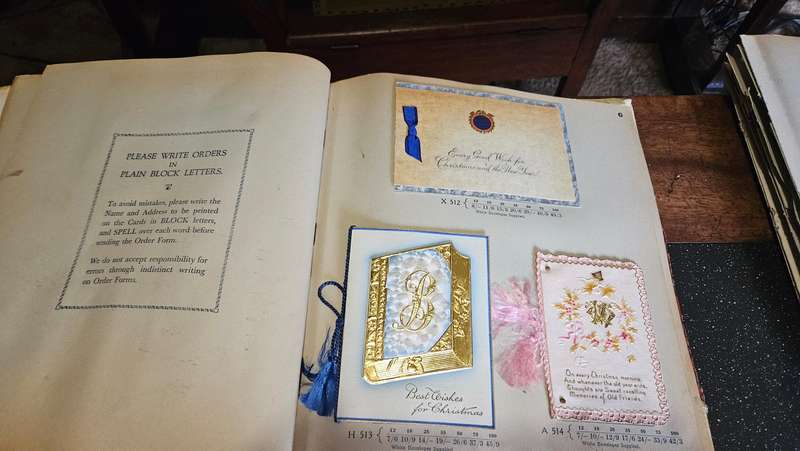 PLEASE WRITE ORDERS
IN
PLAIN BLOCK LETTERS.
To avoid mistakes, please write the
Name and Address to be printed
on the Cards in BLOCK letters,
and SPELL over each word before
sending the Order Form.
We do not accept responsibility for
errors through indistinct writing
on Order Forms.
6
Every Good Wish for
Christmas and the New Year!
X 512 { 12 18 25 50 75 100
White Envelopes Supplied.
B
Best Wishes
for Christmas
H 513 { 12 18 25 35 50 75 100
7/9 10/9 14/- 19/- 26/6 37/3 45/9
White Envelopes Supplied.
On every Christmas morning
And whenever the old year ends,
Thoughts are Sweet recalling
Memories of Old Friends.
A 514 { 12 18 25 35 50 75 100
7/- 10/- 12/9 17/6 24/- 33/9 42/3
White Envelopes Supplied.